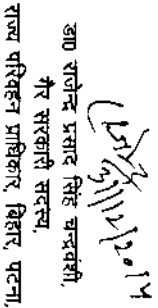 डा0 राजेन्द्र प्रसाद सिंह चन्द्रवंशी,
गैर सरकारी सदस्य,
राज्य परिवहन प्राधिकार, बिहार, पटना।